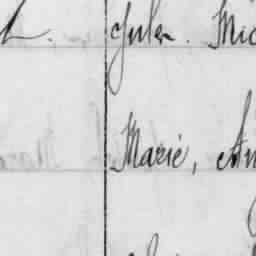 Jules. Mic
Marie, An